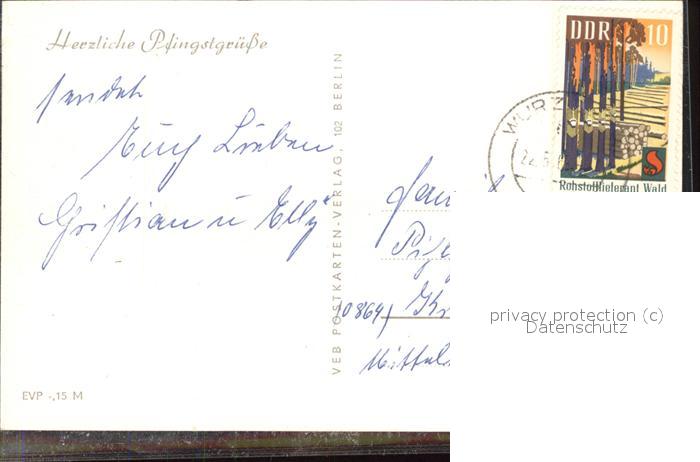 Herzliche Pfingstgrüße
sendet
Euch Lieben
Christian u Elly
EVP -,15 M
VEB POSTKARTEN-VERLAG, 102 BERLIN
DDR 10
WURZ
Rohstofflieferant Wald
Fam
(0864)
privacy protection (c)
Datenschutz